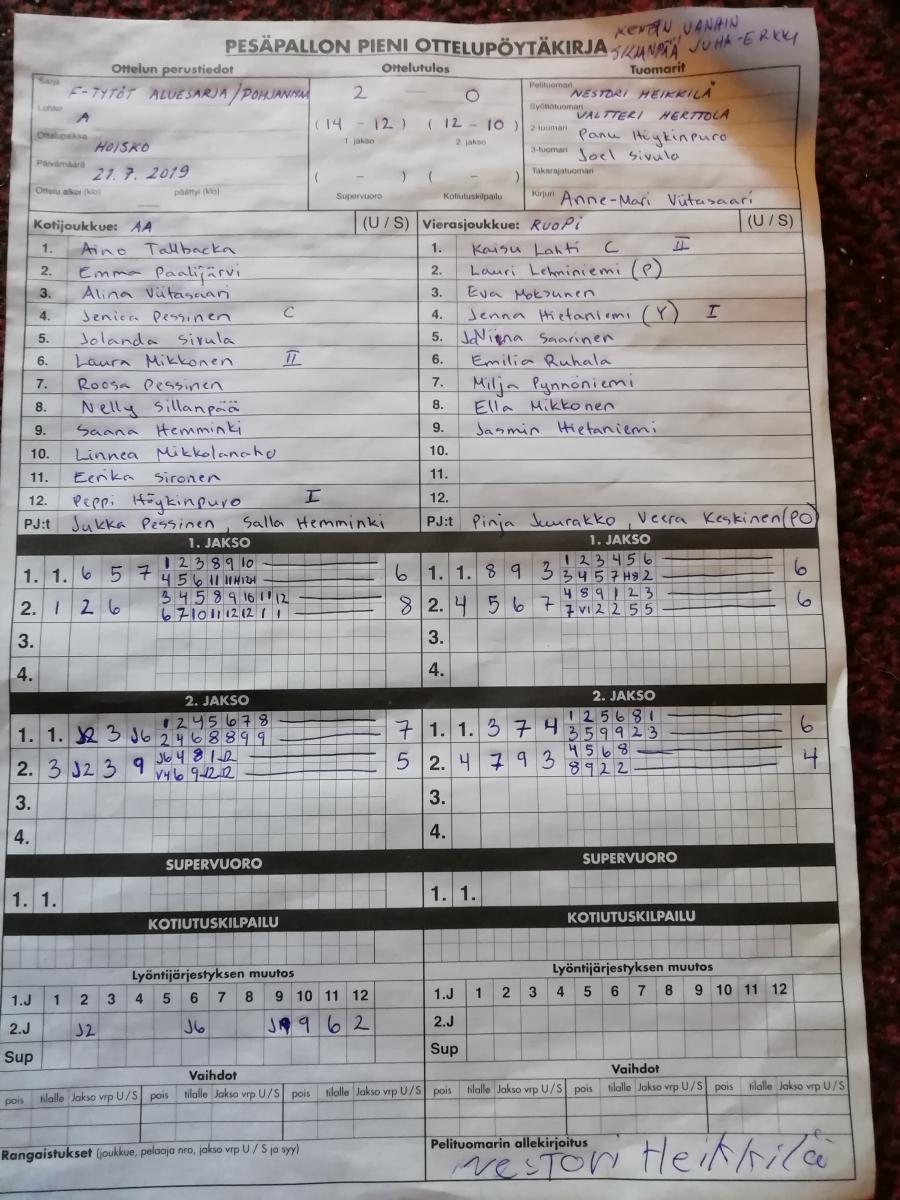 KENTÄN VANHAIN
PESÄPALLON PIENI OTTELUPÖYTÄKIRJA JUHA-ERKKI
Ottelun perustiedot Ottelutulos Tuomarit
Sarja F-TYTÖT ALUESARJA/POHJANMAA 2 — 0 Pelituomari NESTORI HEIKKILÄ
Lohko A (14 - 12) (12 - 10) Syöttötuomari VALTTERI HERTTOLA
1 jakso 2 jakso 2-tuomari Panu Höykinpuro
Ottelupaikka HOISKO 3-tuomari Joel Sivula
Päivämäärä 21.7.2019 ( - ) ( - ) Takarajatuomari
Ottelu alkoi (klo) päättyi (klo) Supervuoro Kotiutuskilpailu Kirjuri Anne-Mari Viitasaari
Kotijoukkue: AA (U / S) Vierasjoukkue: RuoPi (U / S)
1. Aino Tallbacka 1. Kaisu Lahti C II
2. Emma Paalijärvi 2. Lauri Lehminiemi (P)
3. Alina Viitasaari 3. Eva Moksunen
4. Jenica Pessinen C 4. Jenna Hietaniemi (Y) I
5. Jolanda Sivula 5. Niina Saarinen
6. Laura Mikkonen II 6. Emilia Ruhala
7. Roosa Pessinen 7. Milja Pynnöniemi
8. Nelly Sillanpää 8. Ella Mikkonen
9. Saana Hemminki 9. Jasmin Hietaniemi
10. Linnea Mikkolanaho 10.
11. Eerika Sironen 11.
12. Peppi Höykinpuro I 12.
PJ:t Jukka Pessinen, Salla Hemminki PJ:t Pinja Juurakko, Veera Keskinen (PO)
1. JAKSO 1. JAKSO
1 2 3 8 9 10 1 2 3 4 5 6
1. 1. 6 5 7 4 5 6 11 6 1. 1. 8 9 3 3 4 5 7 H8 2 6
3 4 5 8 9 10 11 12 4 8 9 1 2 3
2. 1 2 6 6 7 10 11 12 12 1 1 8 2. 4 5 6 7 7 V1 2 2 5 5 6
3. 3.
4. 4.
2. JAKSO 2. JAKSO
1 2 4 5 6 7 8 1 2 5 6 8 1
1. 1. J2 3 J6 2 4 6 8 8 9 9 7 1. 1. 3 7 4 3 5 9 9 2 3 6
J6 4 8 1 2 4 5 6 8
2. 3 J2 3 9 V4 6 9 12 12 5 2. 4 7 9 3 8 9 2 2 4
3. 3.
4. 4.
SUPERVUORO SUPERVUORO
1. 1. 1. 1.
KOTIUTUSKILPAILU KOTIUTUSKILPAILU
Lyöntijärjestyksen muutos Lyöntijärjestyksen muutos
1.J 1 2 3 4 5 6 7 8 9 10 11 12 1.J 1 2 3 4 5 6 7 8 9 10 11 12
2.J J2 J6 9 6 2 2.J
Sup Sup
Vaihdot Vaihdot
pois tilalle Jakso vrp U / S pois tilalle Jakso vrp U / S pois tilalle Jakso vrp U / S pois tilalle Jakso vrp U / S pois tilalle Jakso vrp U / S pois tilalle Jakso vrp U / S
Rangaistukset (joukkue, pelaaja nro, jakso vrp U / S ja syy) Pelituomarin allekirjoitus
Nestori Heikkilä